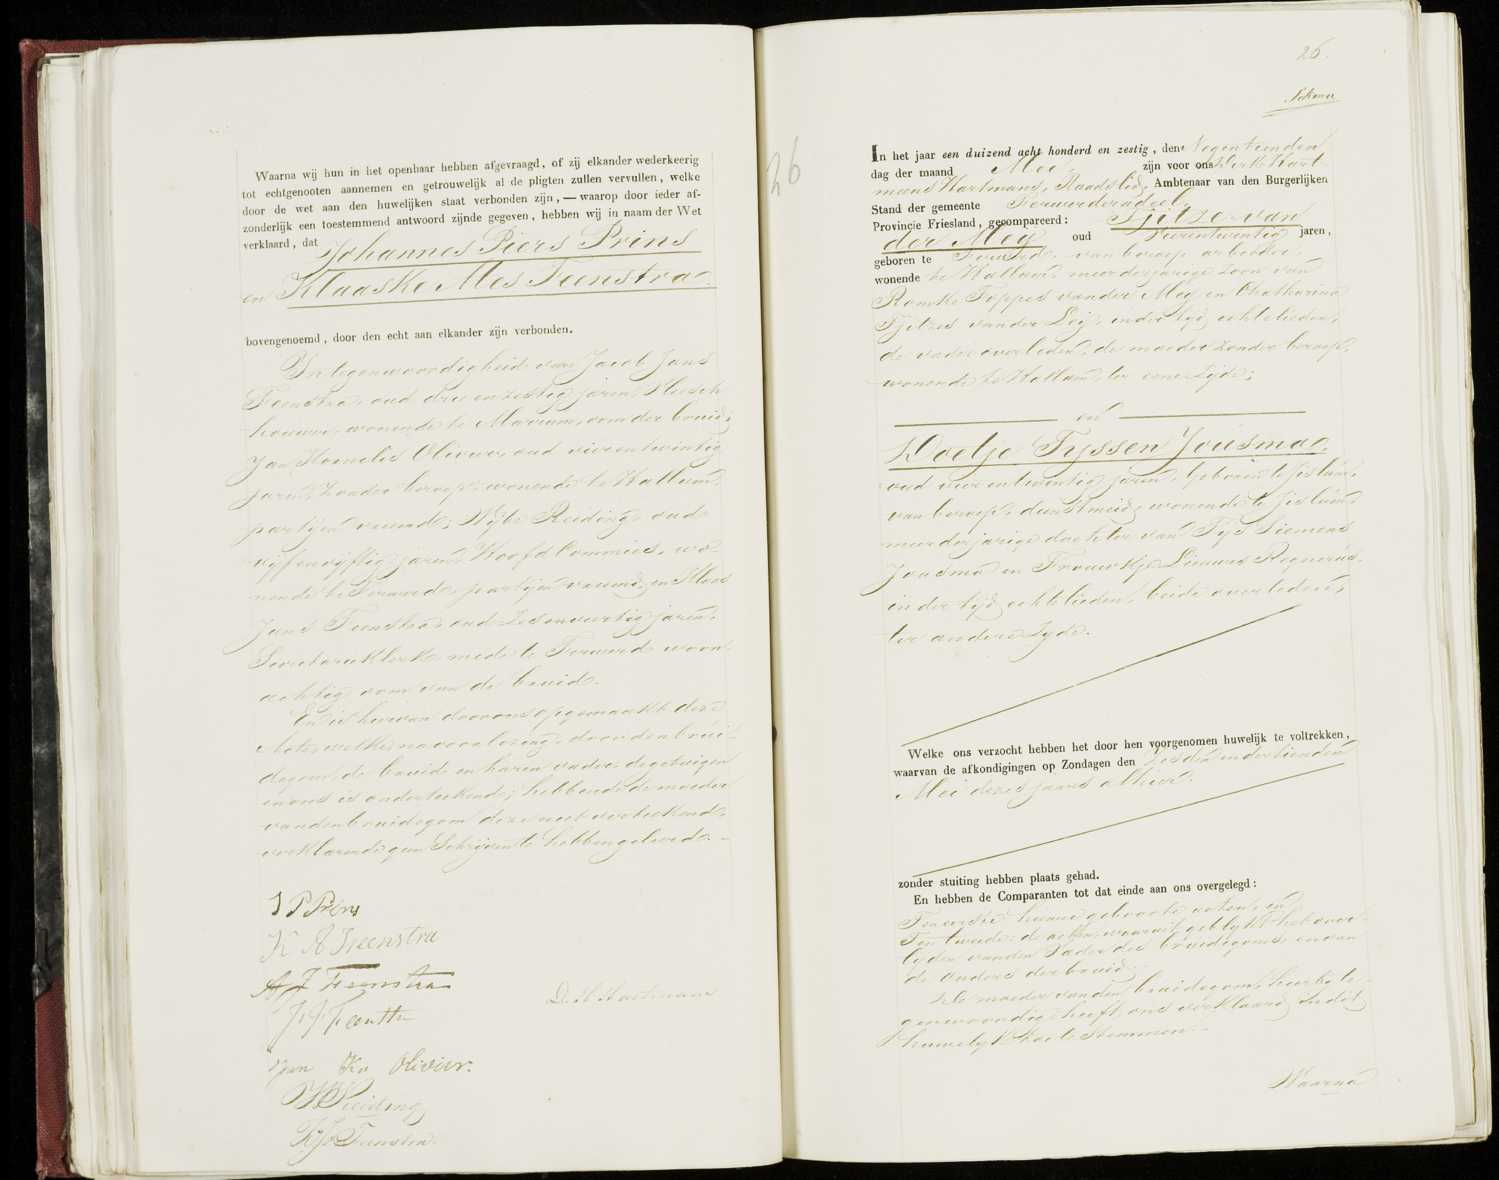 Waarna wij hun in het openbaar hebben afgevraagd, of zij elkander wederkeerig
tot echtgenooten aannemen en getrouwelijk al de pligten zullen vervullen, welke
door de wet aan den huwelijken staat verbonden zijn, — waarop door ieder af-
zonderlijk een toestemmend antwoord zijnde gegeven, hebben wij in naam der Wet
verklaard, dat Johannes Piers Prins
en Klaaske Ales Teenstra
bovengenoemd, door den echt aan elkander zijn verbonden.
In tegenwoordigheid van Jacob Jans
Teenstra, oud drie en zestig jaren, Vleesch
houwer, wonende te Marrum, oom der bruid;
Jan Kornelis Olivier, oud vierentwintig
jaren, zonder beroep, wonende te Hallum,
partijen vriend; Wijbe Reiding, oud
vijfenvijftig jaren, Hoofd Commies, wo-
nende te Ferwerd, partijen vriend, en Klaas
Jans Teenstra, oud zesenveertig jaren,
Secretarieklerk mede te Ferwerd woon
achtig, oom van de bruid.
En is hiervan door ons opgemaakt deze
Acte, welke na voorlezing, door den brui-
degom, de bruid en haren vader, de getuigen
en ons is onderteekend; hebbende de moeder
van den bruidegom deze niet geteekend,
verklarende geen Schrijven te hebben geleerd.
J P Prins
K A Teenstra
A J Teenstra
J J Teenstra
D. H. Hartmans
Jan Ks Olivier.
W Reiding
K. Js Teenstra.
26
26.
In het jaar een duizend acht honderd en zestig, den Negentienden
dag der maand Mei, zijn voor ons Derk Hart
mans Hartmans, Raadslid, Ambtenaar van den Burgerlijken
Stand der gemeente Ferwerderadeel,
Provincie Friesland, gecompareerd: Tjitze van
der Meij oud vierentwintig jaren,
geboren te Ferwerd, van beroep arbeider,
wonende te Hallum, meerderjarige zoon van
Romke Foppes van der Meij en Catharina
Tjitzes van der Leij, in der tijd echtelieden,
de vader overleden, de moeder zonder beroep,
wonende te Hallum, ter eener zijde;
en
Doetje Tyssen Jousma,
oud vier en twintig jaren, geboren te Jislum,
van beroep dienstmeid, wonende te Jislum,
meerderjarige dochter van Tijs Siemens
Jousma en Trouwkje Lieuwes Regnerus,
in der tijd echtelieden, beide overleden,
ter andere zijde.
Welke ons verzocht hebben het door hen voorgenomen huwelijk te voltrekken,
waarvan de afkondigingen op Zondagen den zesden en dertienden
Mei dezes jaars alhier
zonder stuiting hebben plaats gehad.
En hebben de Comparanten tot dat einde aan ons overgelegd:
Ten eerste: hunne geboorte acten, en
Ten tweede: de acten, waaruit geblijkt het over-
lijden van den vader des bruidegoms, en van
de ouders der bruid.
De moeder van den bruidegom, hierbij te-
genwoordig, heeft ons verklaard, in dit
huwelijk toe te stemmen.
Waarna